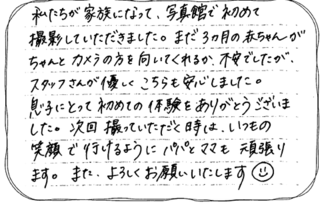 私たちが家族になって、写真館で初めて
撮影していただきました。まだ3ヵ月の赤ちゃんが
ちゃんとカメラの方を向いてくれるか、不安でしたが、
スタッフさんが優しくこちらも安心しました。
息子にとって初めての体験をありがとうございま
した。次回撮っていただく時は、いつもの
笑顔で行けるようにパパとママも頑張り
ます。また、よろしくお願いいたします